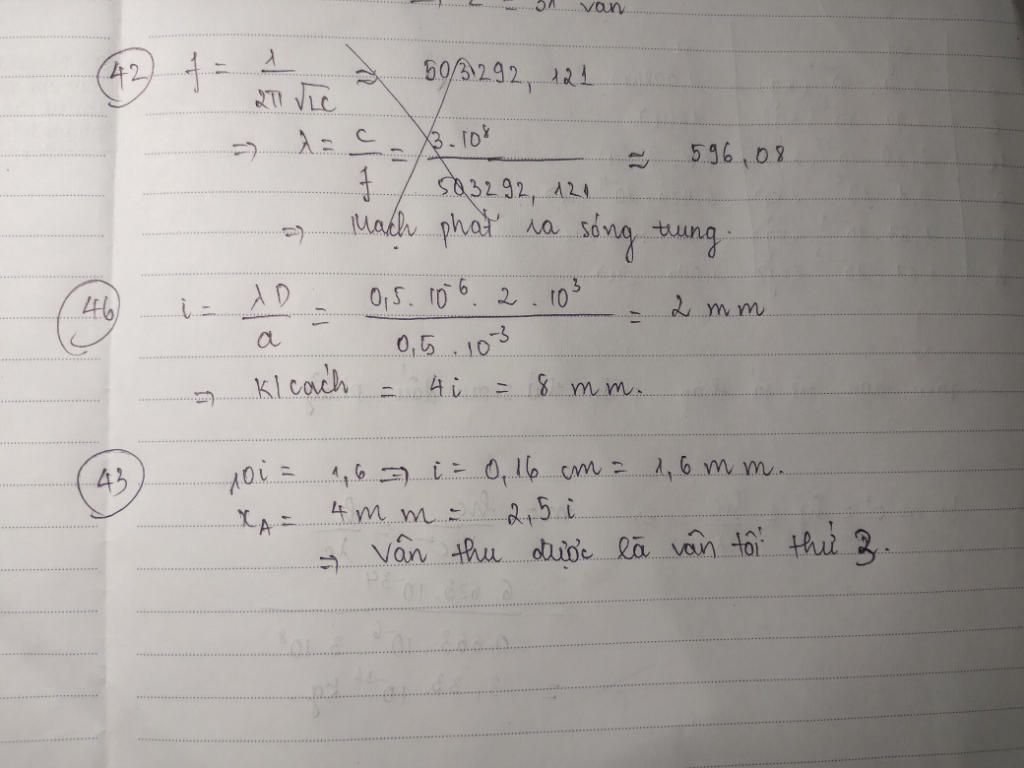 = 5λ vân
42 f = λ / 2π √LC ≈ 503292, 121
⇒ λ = c / f = 3.10⁸ / 503292, 121 ≈ 596,08
⇒ Mạch phát ra sóng trung.
46 i = λD / a = 0,5. 10⁻⁶. 2 . 10³ / 0,5 .10⁻³ = 2 mm
⇒ K/cách = 4i = 8 mm.
43 10i = 1,6 ⇒ i = 0,16 cm = 1,6 mm.
x_A = 4mm = 2,5i
⇒ Vân thu được là vân tối thứ 3.